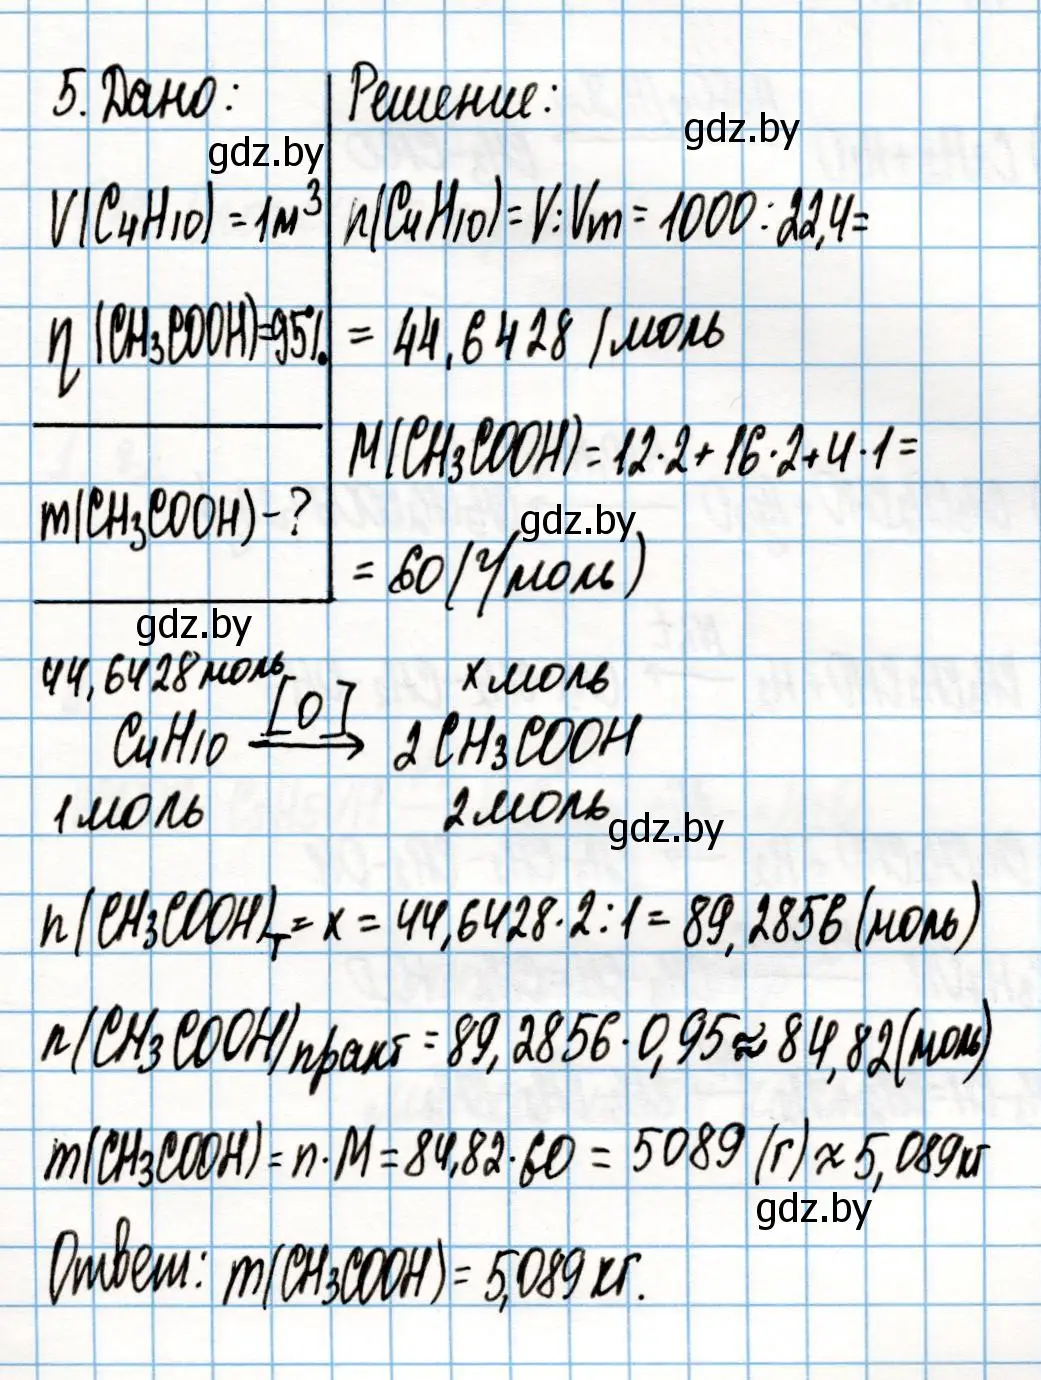 5. Дано:
gdz.by
V(C4H10) = 1м³
η (CH3COOH)=95%
m(CH3COOH)-?
Решение:
gdz.by
n(C4H10) = V:Vm = 1000 : 22,4=
= 44,6428 (моль
M(CH3COOH)=12·2+16·2+4·1=
gdz.by
= 60 (г/моль)
gdz.by
44,6428 моль x моль
C4H10 [O] → 2CH3COOH
1 моль 2 моль
gdz.by
n(CH3COOH)т = x = 44,6428·2:1 = 89,2856 (моль)
n(CH3COOH)практ = 89,2856·0,95≈84,82(моль)
m(CH3COOH)=n·M=84,82·60 = 5089 (г)≈5,089кг
gdz.by
Ответ: m(CH3COOH)=5,089 кг.